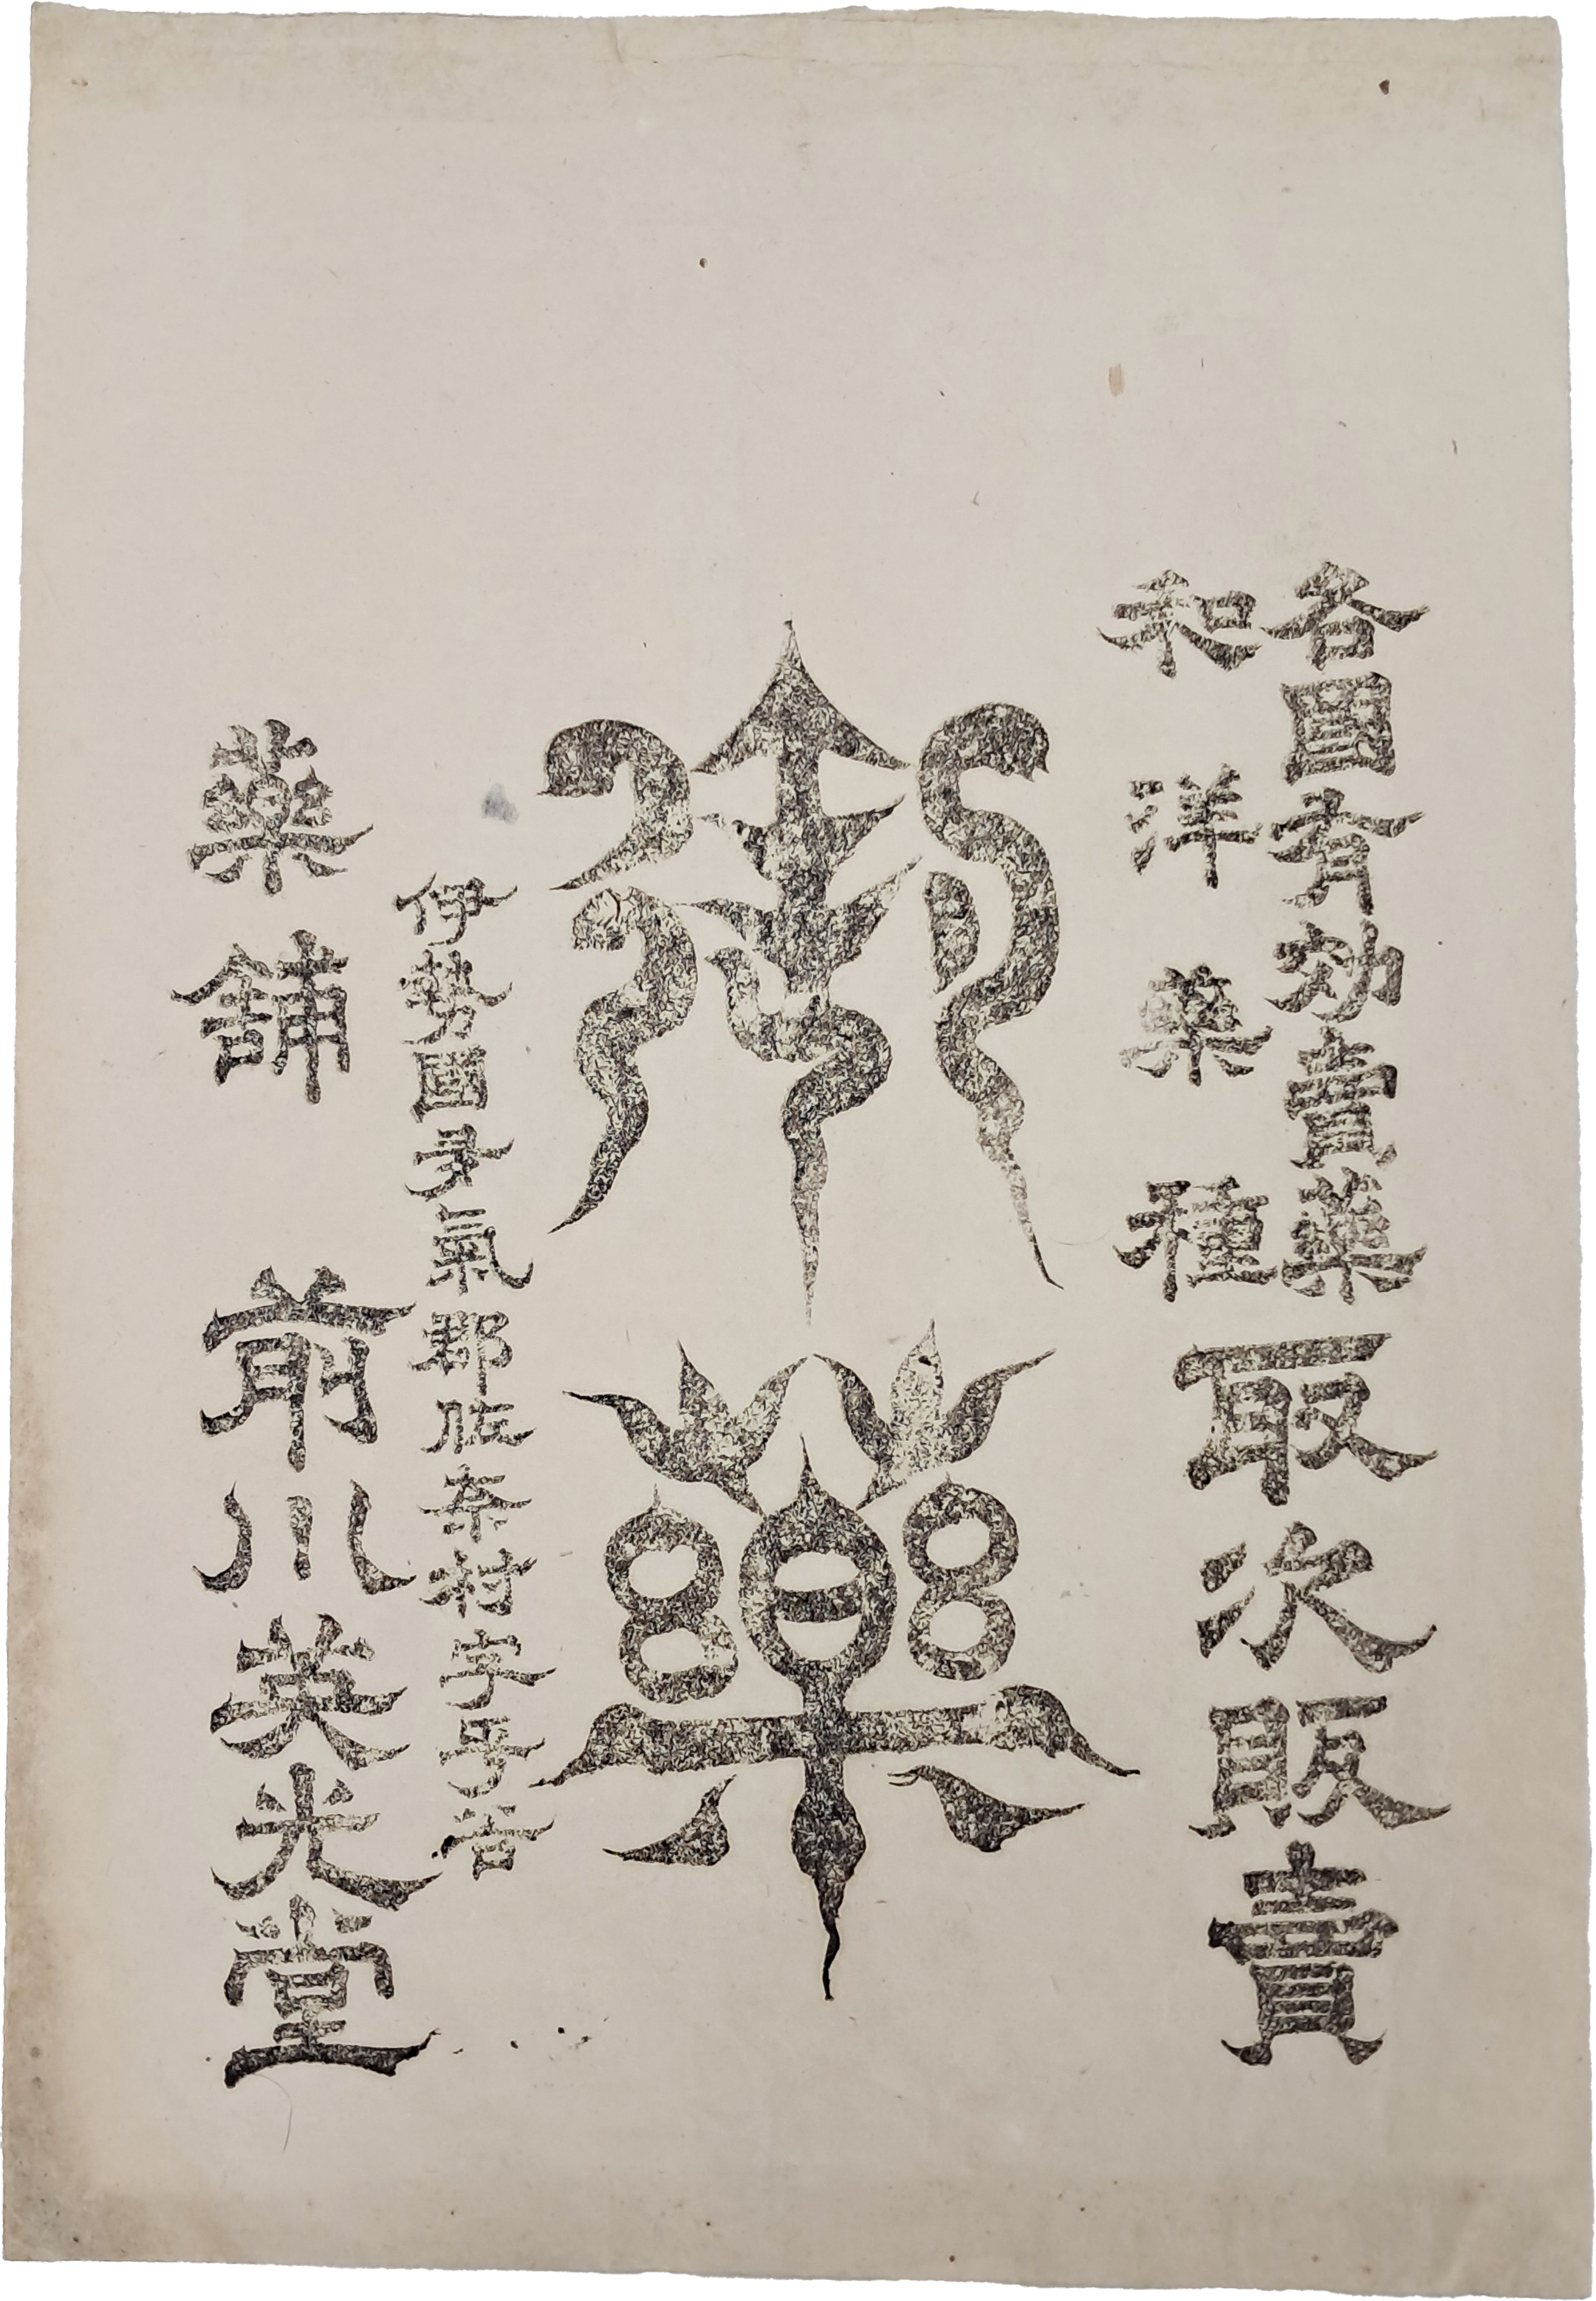 各國有効賣藥
和洋薬種
取次販賣
御藥
伊勢國多氣郡佐奈村字平谷
藥舖 前川英光堂